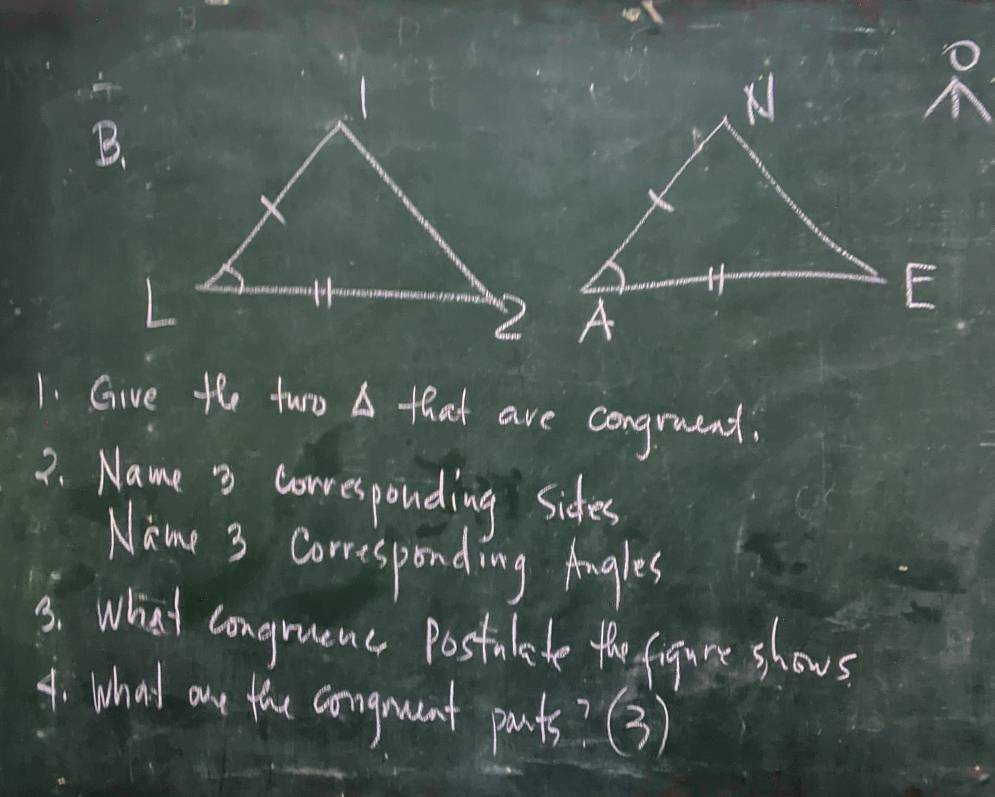 B.
I
N
L
Z
A
E
1. Give the two Δ that are congruent.
2. Name 3 Corresponding Sides
Name 3 Corresponding Angles
3. What Congruence Postulate the figure shows
4. What are the congruent parts? (3)